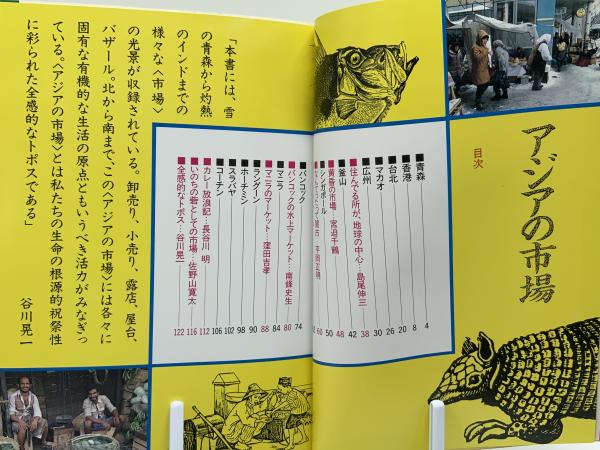 アジアの市場
目次
■青森 4
■香港 8
■台北 20
■マカオ 26
■広州 30
■住んでる所が、地球の中心…島尾伸三 38
■釜山 42
■黄昏の市場…宮迫千鶴 48
■シンガポール 50
平岡正明 60
■バンコック 74
■バンコックの水上マーケット…南條史生 80
■マニラ 84
■マニラのマーケット…窪田吉孝 88
■ラングーン 90
■ホーチミン 98
■スラバヤ 102
■コーチン 106
■カレー放浪記…長谷川 明 112
■いのちの砦としての市場…佐野山寛太 116
■全感的なトポス…谷川晃一 122
「本書には、雪
の青森から灼熱
のインドまでの
様々な〈市場〉
の光景が収録されている。卸売り、小売り、露店、屋台、
バザール。北から南まで、この〈アジアの市場〉には各々に
固有な有機的な生活の原点ともいうべき活力がみなぎっ
ている。〈アジアの市場〉とは私たちの生命の根源的祝祭性
に彩られた全感的なトポスである」
谷川晃一